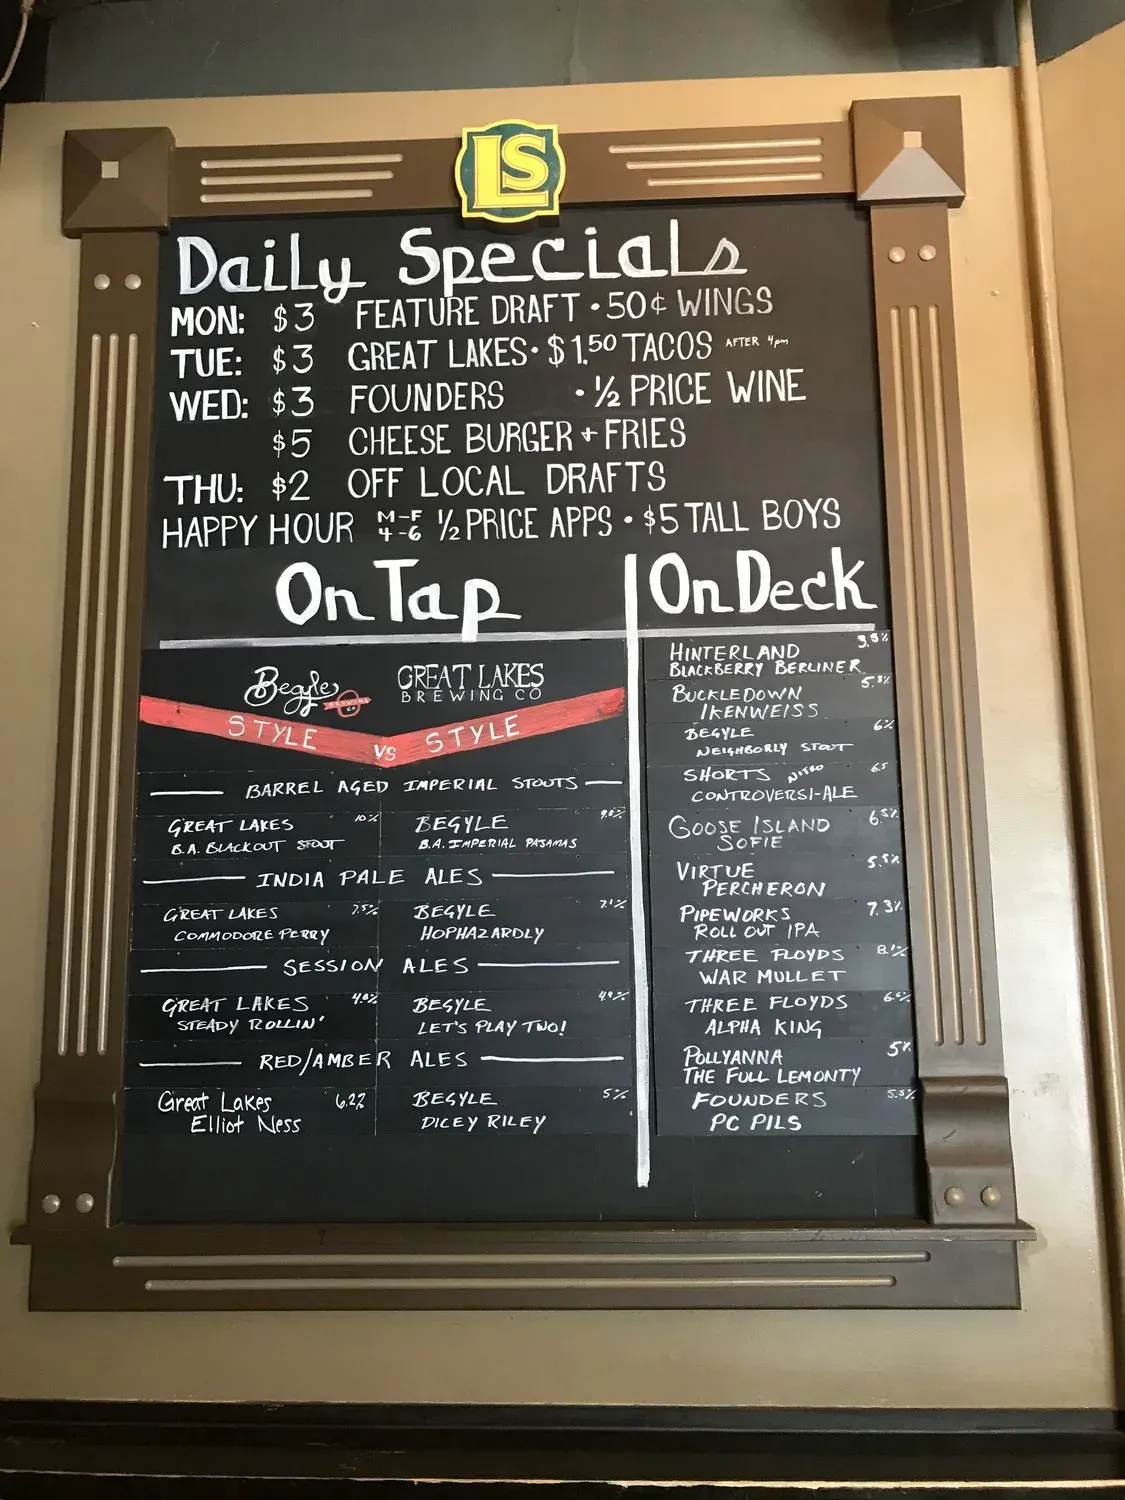 LS
Daily Specials
MON: $3 FEATURE DRAFT • 50¢ WINGS
TUE: $3 GREAT LAKES • $1.50 TACOS AFTER 4pm
WED: $3 FOUNDERS • 1/2 PRICE WINE
$5 CHEESE BURGER + FRIES
THU: $2 OFF LOCAL DRAFTS
HAPPY HOUR M-F 4-6 1/2 PRICE APPS • $5 TALL BOYS
On Tap
Begyle BREWING CO
GREAT LAKES
BREWING CO
STYLE VS STYLE
BARREL AGED IMPERIAL STOUTS
GREAT LAKES 10%
B.A. BLACKOUT STOUT
BEGYLE
B.A. IMPERIAL PAJAMAS
INDIA PALE ALES
GREAT LAKES 7.5%
COMMODORE PERRY
BEGYLE 7.1%
HOPHAZARDLY
SESSION ALES
GREAT LAKES
STEADY ROLLIN'
BEGYLE
LET'S PLAY TWO!
RED/AMBER ALES
Great Lakes 6.2%
Elliot Ness
BEGYLE 5%
DICEY RILEY
On Deck
HINTERLAND
BLACKBERRY BERLINER
BUCKLEDOWN
IKENWEISS
BEGYLE 6%
NEIGHBORLY STOUT
SHORTS NITRO 6.5
CONTROVERSI-ALE
GOOSE ISLAND 6.5%
SOFIE
VIRTUE 5.5%
PERCHERON
PIPEWORKS 7.3%
ROLL OUT IPA
THREE FLOYDS
WAR MULLET
THREE FLOYDS
ALPHA KING
POLLYANNA 5%
THE FULL LEMONTY
FOUNDERS 5.5%
PC PILS